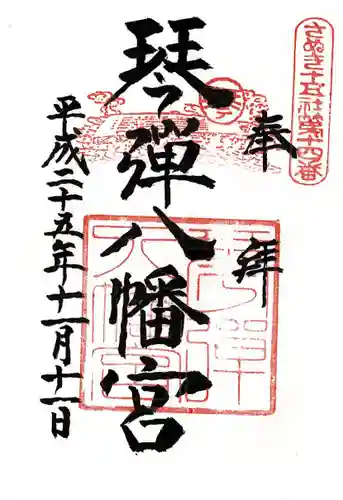 さぬき十五社第十四番
奉拝
琴弾八幡宮
平成二十五年十一月十一日